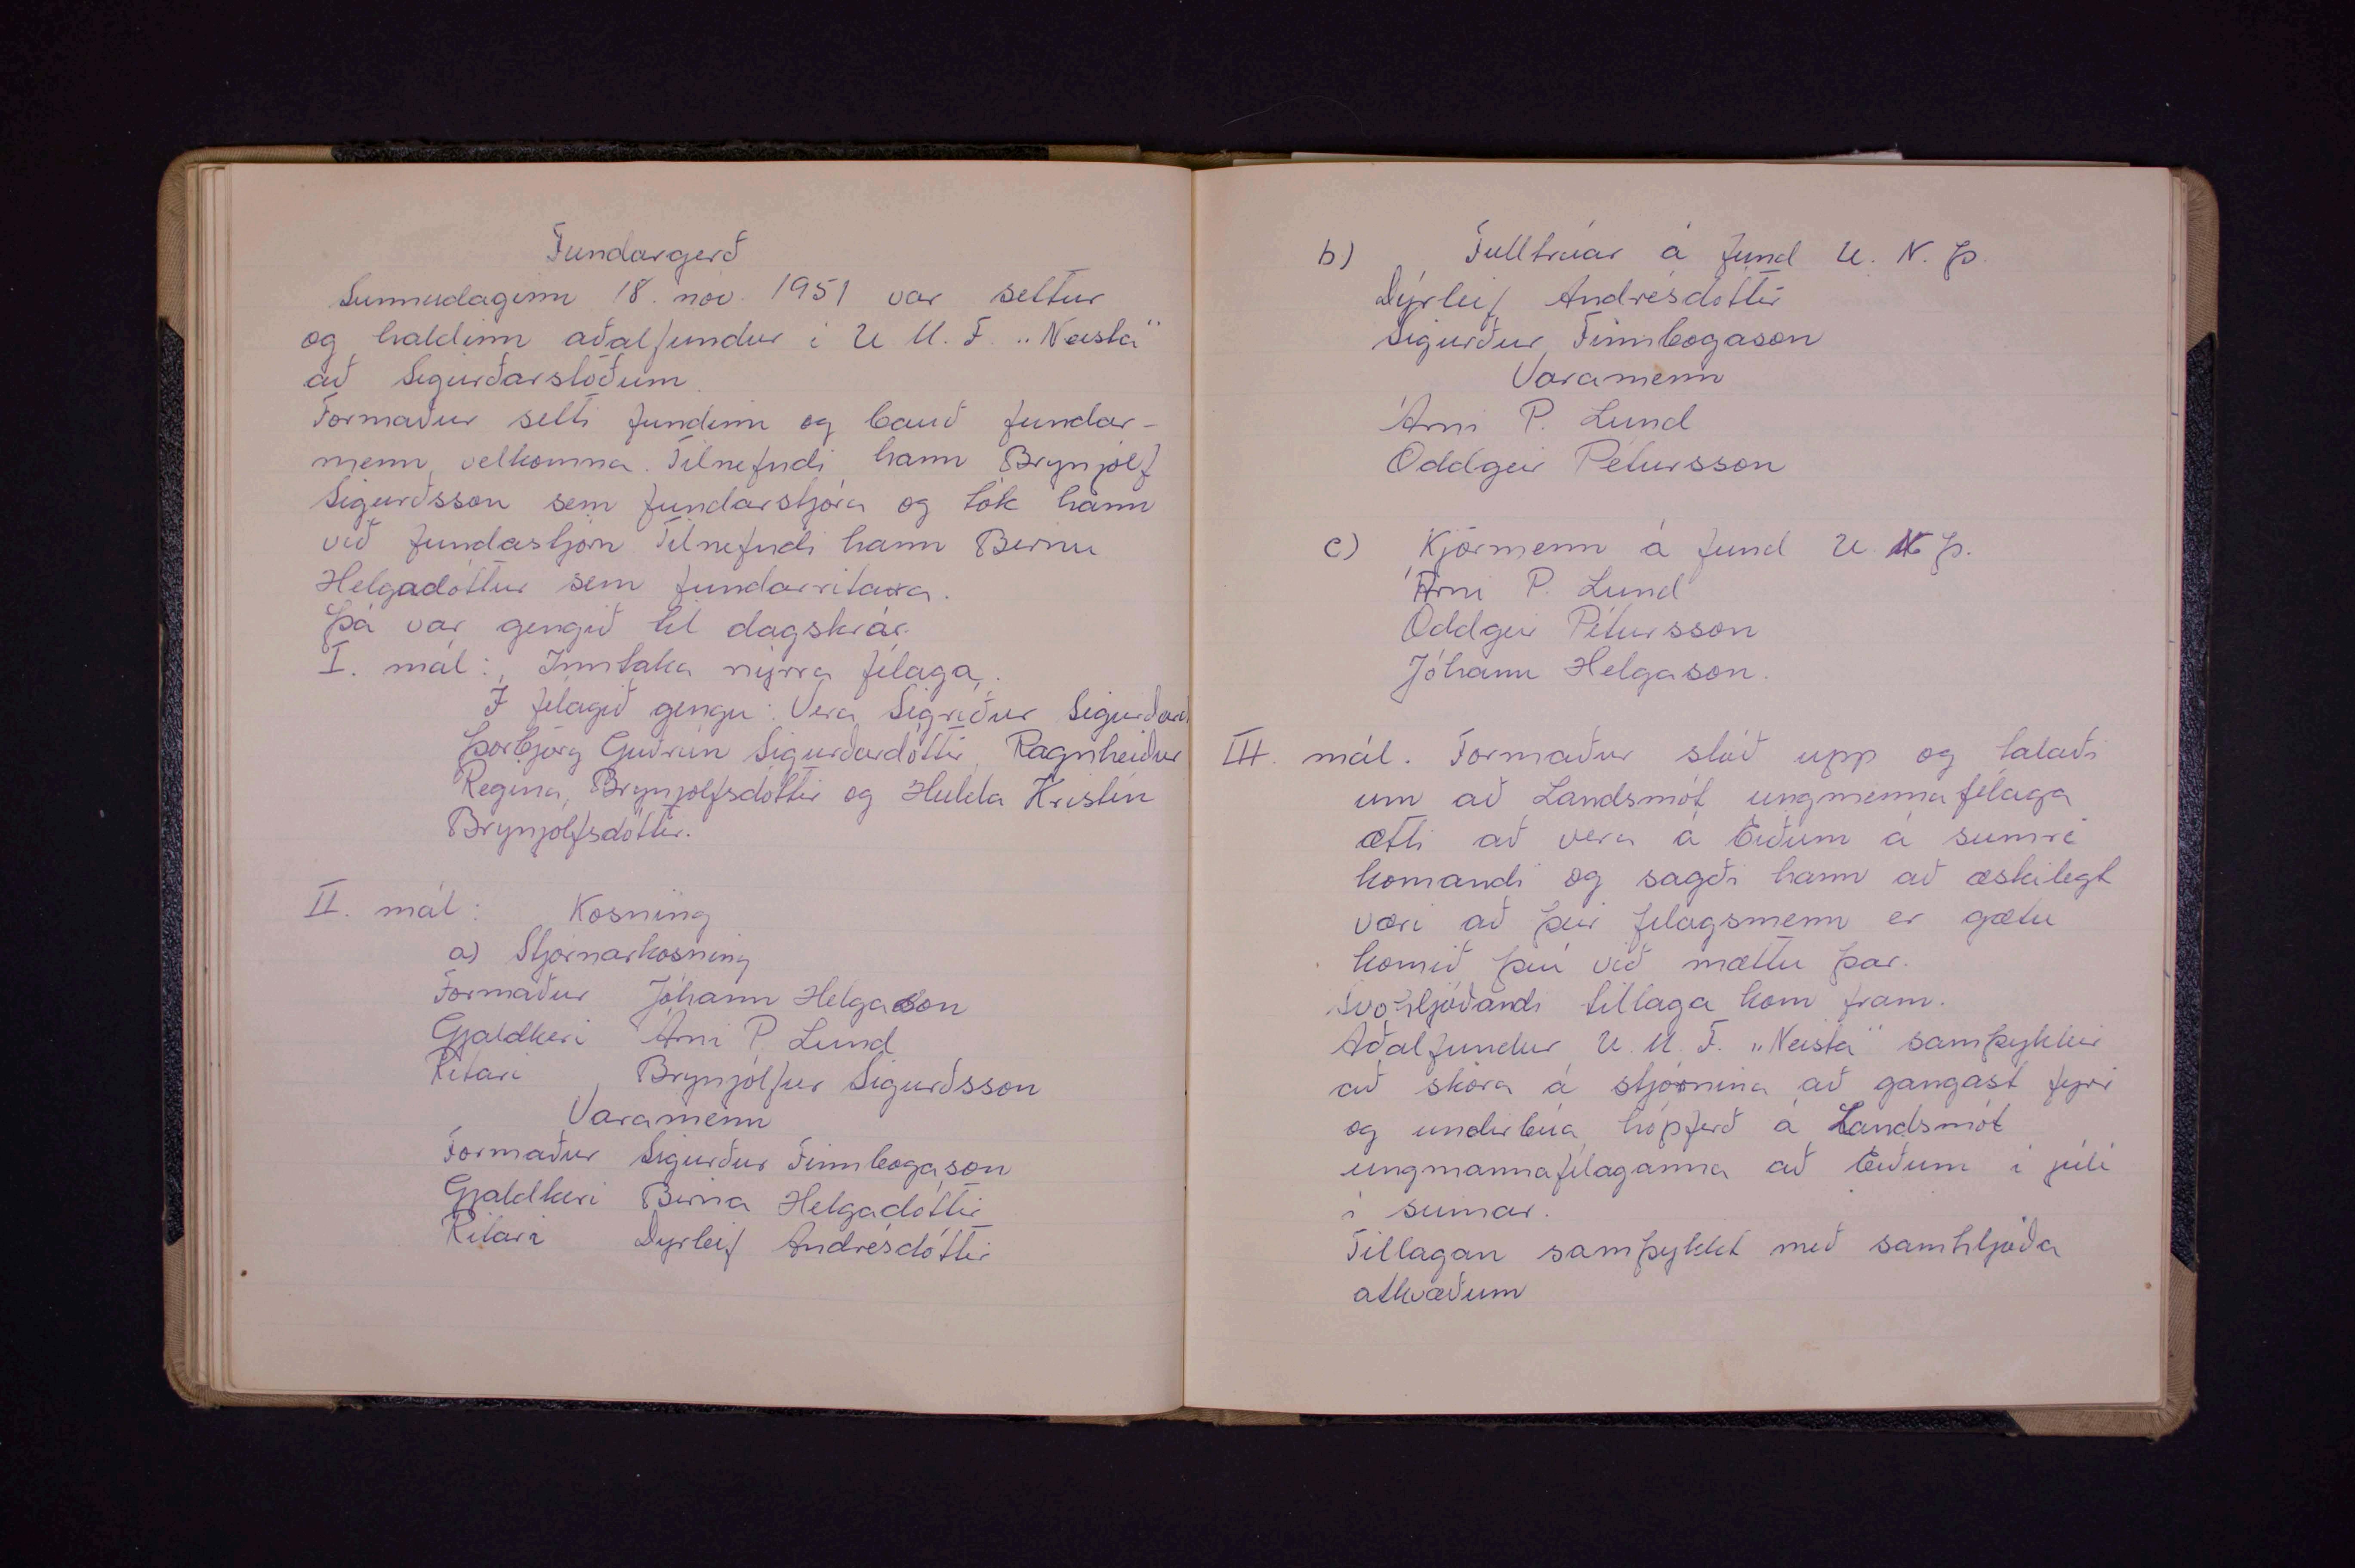 Fundargerð
Sunnudaginn 18. nóv. 1951 var settur
og haldinn aðalfundur í U M. F. „Neista"
að Sigurðarstöðum.
Formaður setti fundinn og bauð fundar-
menn velkomna. Tilnefndi hann Brynjólf
Sigurðsson sem fundarstjóra og tók hann
við fundastjórn Tilnefndi hann Birnu
Helgadóttur sem fundarritara.
Þá var gengið til dagskrár.
I. mál: Inntaka nýrra félaga.
Í félagið gengu: Vera Sigríður Sigurðard
Þorbjörg Guðrún Sigurðardóttir, Ragnheiður
Regína Brynjólfsdóttir og Hulda Kristín
Brynjólfsdóttir.
II. mál: Kosning
a) Stjórnarkosning
Formaður Jóhann Helgason
Gjaldkeri Árni P. Lund
Ritari Brynjólfur Sigurðsson
Varamenn
Formaður Sigurður Finnbogason
Gjaldkeri Birna Helgadóttir
Ritari Dýrleif Andrésdóttir
b) Fulltrúar á fund U. N. Þ.
Dýrleif Andrésdóttir
Sigurður Finnbogason
Varamenn
Árni P. Lund
Oddgeir Pétursson
c) Kjörmenn á fund U. N. Þ.
Árni P. Lund
Oddgeir Pétursson
Jóhann Helgason.
III. mál. Formaður stóð upp og talaði
um að Landsmót ungmennafélaga
ætti að vera á Eiðum á sumri
komandi og sagði hann að æskilegt
væri að þeir félagsmenn er gætu
komið því við mættu þar.
Svohljóðandi tillaga kom fram.
Aðalfundur U. M. F. „Neista" samþykkir
að skora á stjórnina að gangast fyrir
og undirbúa hópferð á Landsmót
ungmannafélaganna að Eiðum í júlí
í sumar.
Tillagan samþykkt með samhljóða
atkvæðum